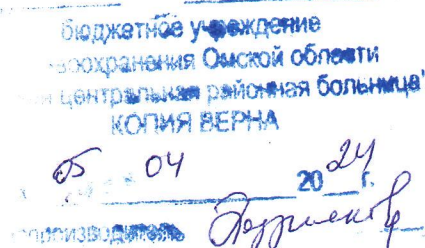 бюджетное учреждение
воохранения Омской области
центральная районная больница"
КОПИЯ ВЕРНА
05 04 2024 г.
опроизводитель